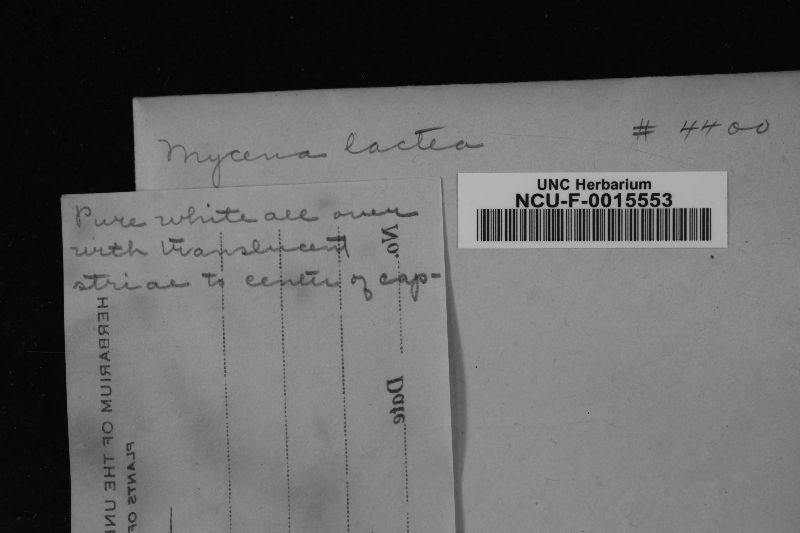 Mycena lactea
# 4400
UNC Herbarium
NCU-F-0015553
Pure white all over
with translucent
striae to center of cap-
No.
Date
HERBARIUM OF THE UNI
PLANTS OF